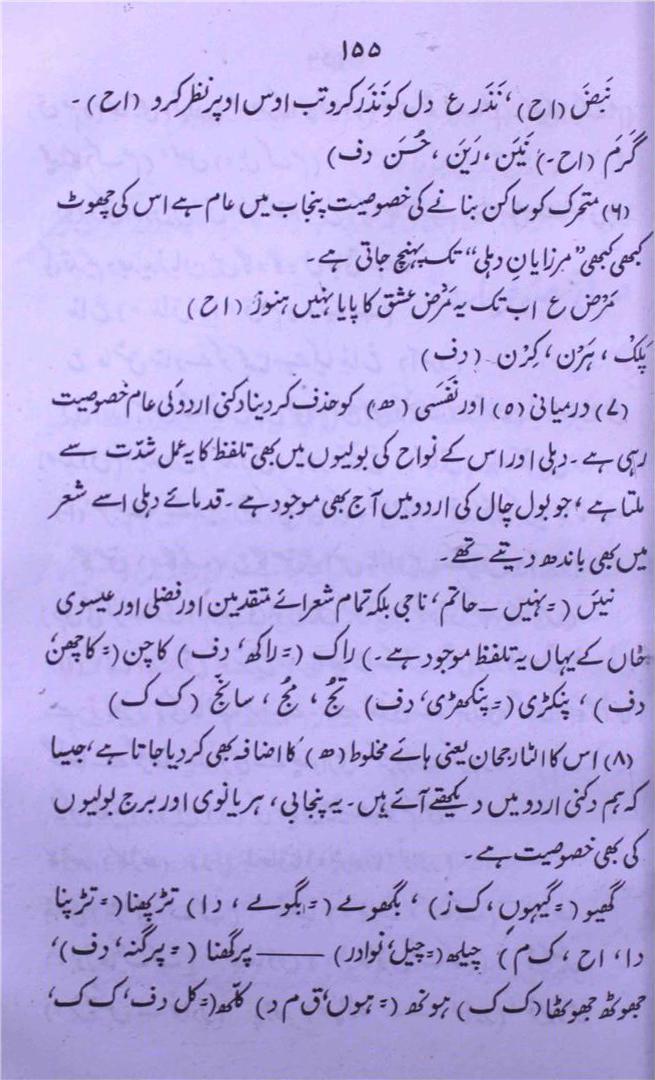 ۱۵۵
نَبَض (اح)، نَذَر ع دل کو نَذَر کرو تب اوس اوپر نظر کرو (اح)۔
گَرَم (اح۔) نَیَن، رَیَن، حُسَن دف)
(۶) متحرک کو ساکن بنانے کی خصوصیت پنجاب میں عام ہے اس کی چھوٹ
کبھی کبھی ”مرزایانِ دہلی“ تک پہنچ جاتی ہے۔
مَرْض ع اب تک یہ مَرْض عشق کا پایا نہیں ہنوز (اح)
پَلْک، ہَرْن، کِرْن (دف)
(۷) درمیانی (ہ) اور نَفَسی (ھ) کو حذف کر دینا دکنی اردو کی عام خصوصیت
رہی ہے۔ دہلی اور اس کے نواح کی بولیوں میں بھی تلفظ کا یہ عمل شدّت سے
ملتا ہے، جو بول چال کی اردو میں آج بھی موجود ہے۔ قدمائے دہلی اسے شعر
میں بھی باندھ دیتے تھے
نیئں (= نہیں – حاتم، ناجی بلکہ تمام شعرائے متقدمین اور فضلی اور عیسوی
خاں کے یہاں یہ تلفظ موجود ہے۔) راک (= راکھ، دف) کاچن (= کاچھن،
دف)، پنکڑی (= پنکھڑی، دف) تُج، مُج، سانج (ک ک)
(۸) اس کا الٹا رجحان یعنی ہائے مخلوط (ھ) کا اضافہ بھی کر دیا جاتا ہے، جیسا
کہ ہم دکنی اردو میں دیکھتے آئے ہیں۔ یہ پنجابی، ہریانوی اور برج بولیوں
کی بھی خصوصیت ہے۔
گھیو (= گیہوں، ک ز)، بگھولے (= بگولے، دا) تڑپھنا (= تڑپنا
دا، اح، ک م) چیلھ (= چیل، نوادر) ——— پرگھنا (= پرگنہ، دف)،
جھوٹھ جھوٹھا (ک ک) ہونھ (= ہوں، ق م د) کلّھ (= کل دف، ک ک،